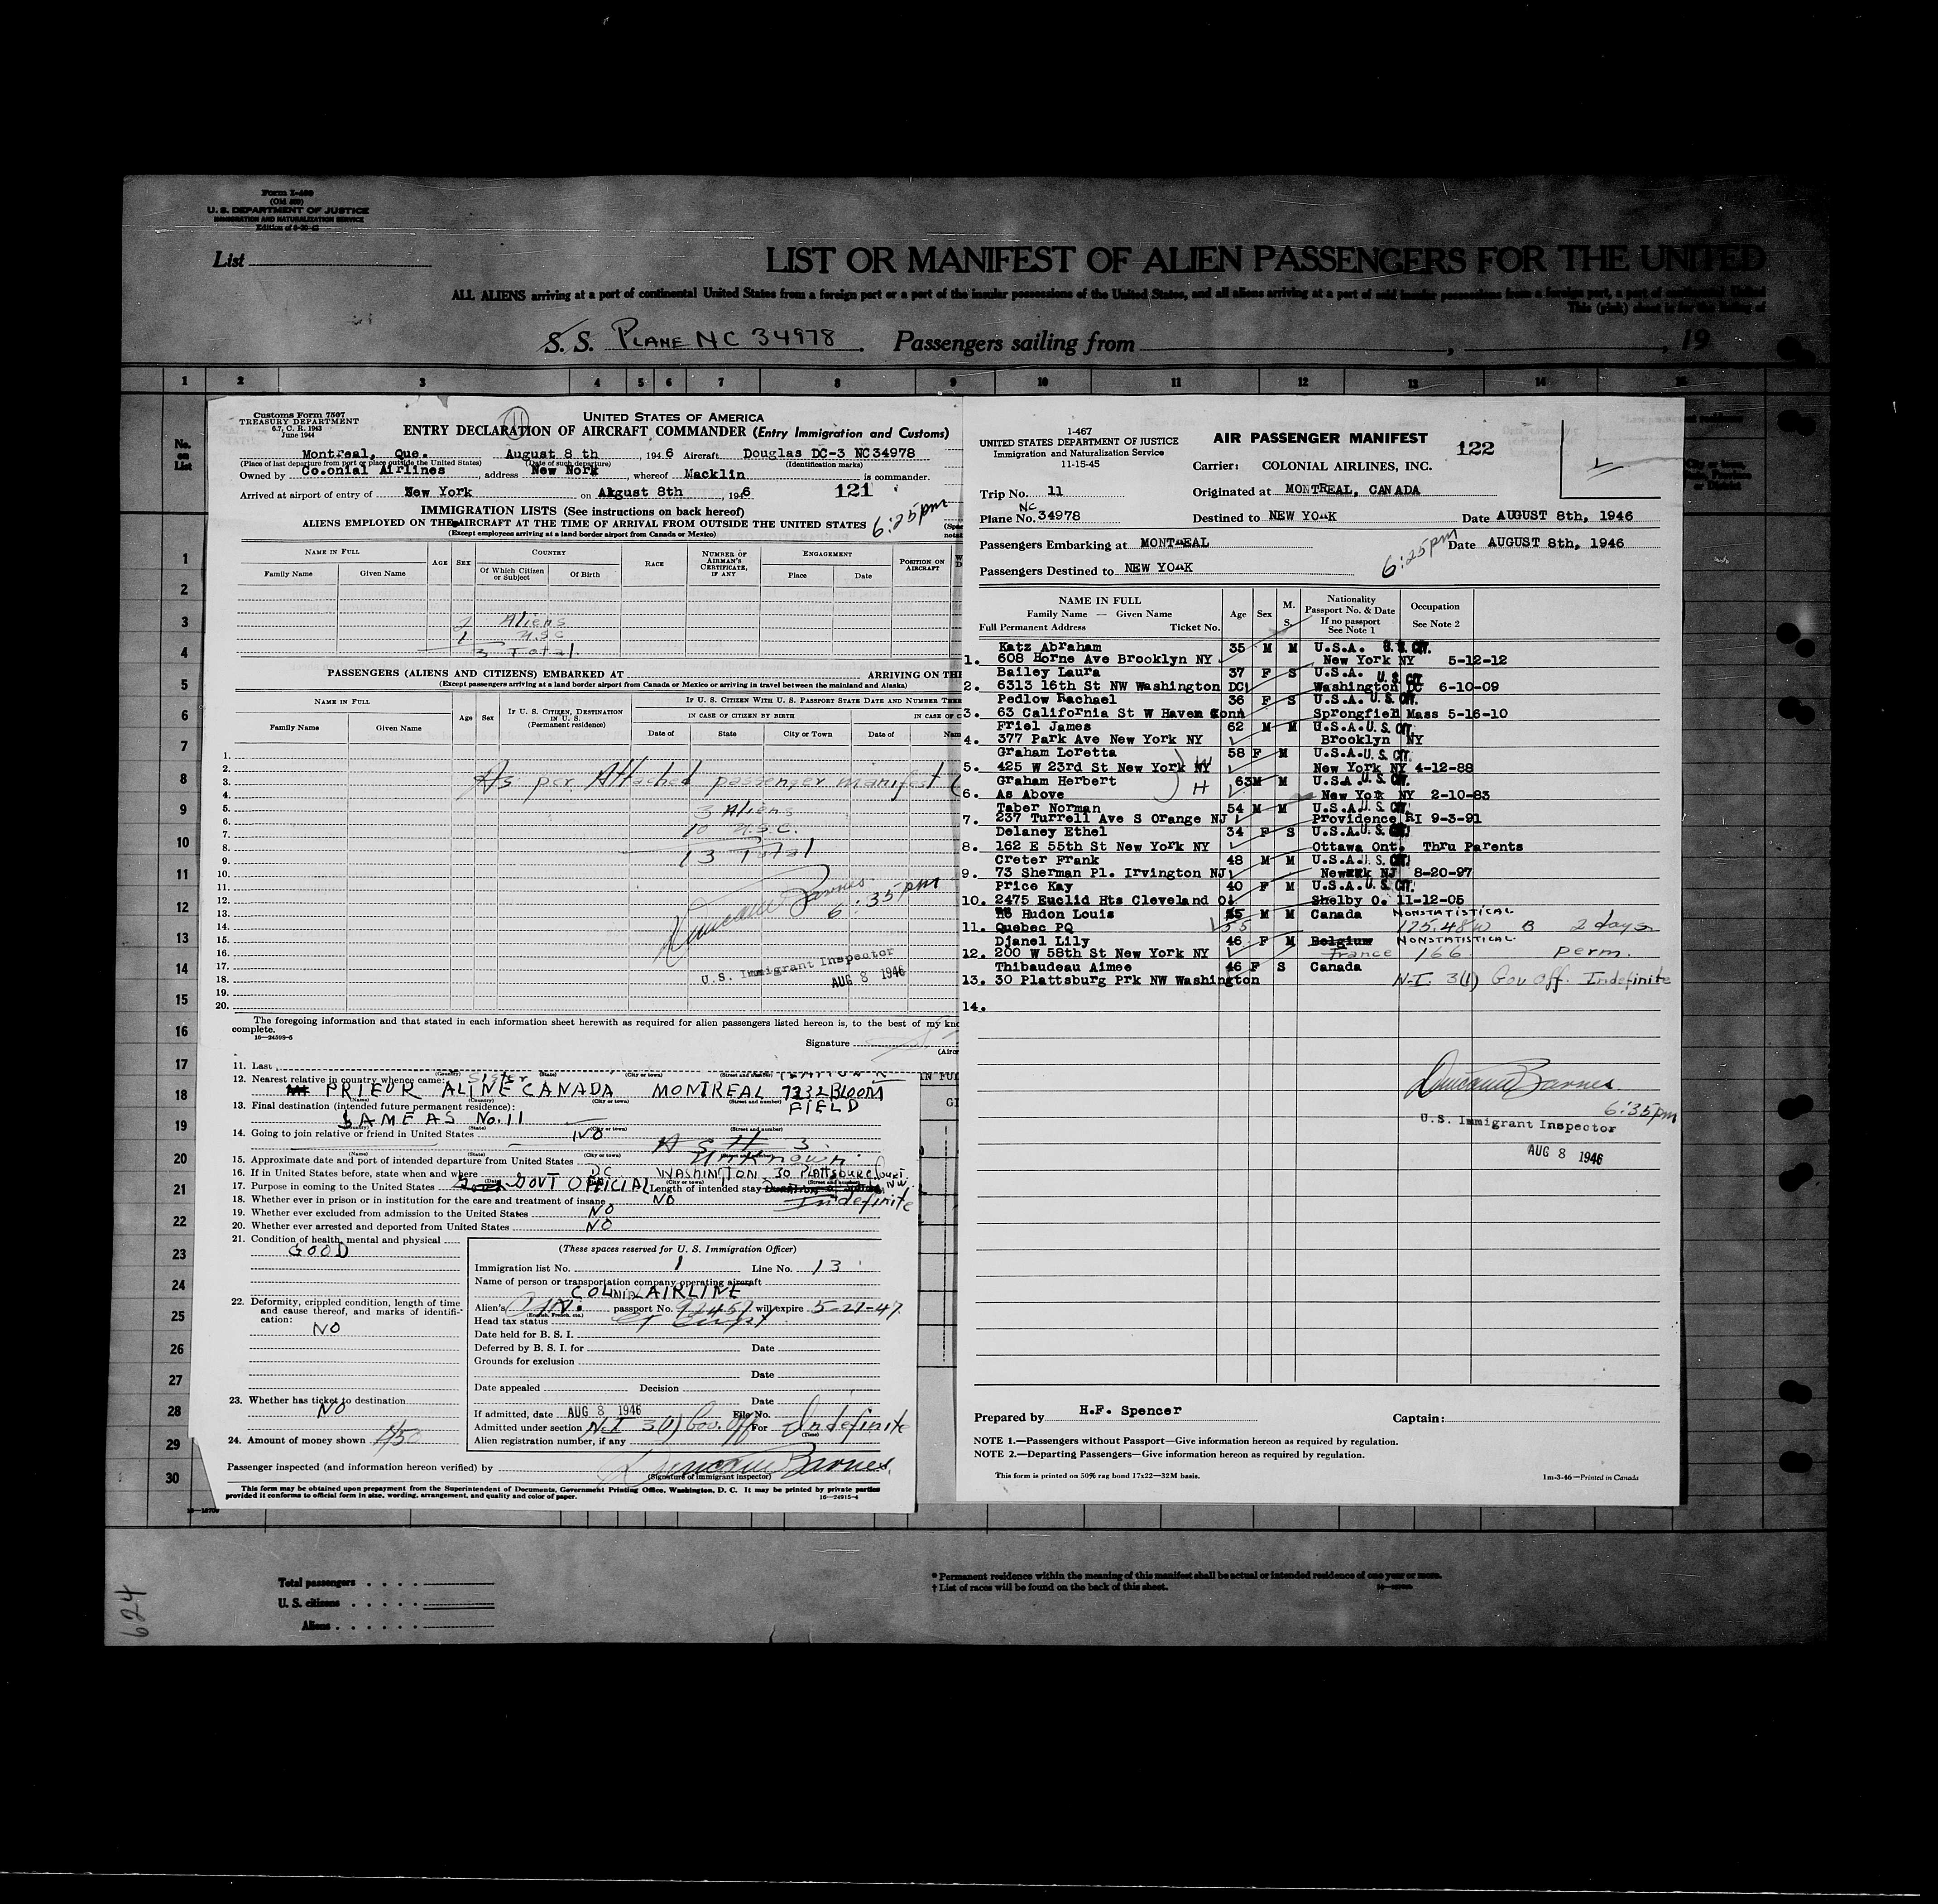 Form I-466
(Old 500)
U. S. DEPARTMENT OF JUSTICE
IMMIGRATION AND NATURALIZATION SERVICE
List
LIST OR MANIFEST OF ALIEN PASSENGERS FOR THE UNITED
ALL ALIENS arriving at a port of continental United States from a foreign port or a port of the insular possessions of the United States, and all aliens arriving at a port of said insular possessions from a foreign port, a port of continental United
This (pink) sheet is for the listing of
S. S. PLANE NC 34978. Passengers sailing from , , 19
1 2 3 4 5 6 7 8 9 10 11 12 13 14 15
No. on List
1
2
3
4
5
6
7
8
9
10
11
12
13
14
15
16
17
18
19
20
21
22
23
24
25
26
27
28
29
30
Customs Form 7507
TREASURY DEPARTMENT
6.7, C. R. 1943
June 1944
11
UNITED STATES OF AMERICA
ENTRY DECLARATION OF AIRCRAFT COMMANDER (Entry Immigration and Customs)
Montreal, Que. August 8 th, 1946 Aircraft Douglas DC-3 NC34978
(Place of last departure from port or place outside the United States) (Date of such departure) (Identification marks)
Owned by Colonial Airlines, address New Nork, whereof Macklin is commander.
Arrived at airport of entry of New York on August 8th, 1946 121
IMMIGRATION LISTS (See instructions on back hereof)
6:25pm
ALIENS EMPLOYED ON THE AIRCRAFT AT THE TIME OF ARRIVAL FROM OUTSIDE THE UNITED STATES
(Except employees arriving at a land border airport from Canada or Mexico)
NAME IN FULL AGE SEX COUNTRY RACE NUMBER OF AIRMAN'S CERTIFICATE, IF ANY ENGAGEMENT POSITION ON AIRCRAFT
Family Name Given Name Of Which Citizen or Subject Of Birth Place Date
2 Aliens
1 U.S.C
3 Total
PASSENGERS (ALIENS AND CITIZENS) EMBARKED AT ARRIVING ON TH
(Except passengers arriving at a land border airport from Canada or Mexico or arriving in travel between the mainland and Alaska)
NAME IN FULL Age Sex IF U. S. CITIZEN, DESTINATION IN U. S. (Permanent residence) IF U. S. CITIZEN WITH U. S. PASSPORT STATE DATE AND NUMBER THER
IN CASE OF CITIZEN BY BIRTH IN CASE OF C
Family Name Given Name Date of State City or Town Date of Nam
1.
2.
3.
4.
5.
6.
7.
8.
9.
10.
11.
12.
13.
14.
15.
16.
17.
18.
19.
20.
As per Attached passenger manifest
3 Aliens
10 U.S.C.
13 Total
Duncan Barnes
6:35pm
U.S. Immigrant Inspector
AUG 8 1946
The foregoing information and that stated in each information sheet herewith as required for alien passengers listed hereon is, to the best of my kno
complete.
16—24598-5
Signature
11. Last
12. Nearest relative in country whence came: Sister
PRIEUR ALINE CANADA MONTREAL 7232 BLOOM
FIELD
13. Final destination (intended future permanent residence):
SAME AS No. 11
14. Going to join relative or friend in United States NO
15. Approximate date and port of intended departure from United States Unknown
16. If in United States before, state when and where DC WASHINGTON 30 PLATTSBURG Court. NW
17. Purpose in coming to the United States GOVT OFFICIAL Length of intended stay Indefinite
18. Whether ever in prison or in institution for the care and treatment of insane NO
19. Whether ever excluded from admission to the United States NO
20. Whether ever arrested and deported from United States NO
21. Condition of health, mental and physical
GOOD
22. Deformity, crippled condition, length of time and cause thereof, and marks of identification:
NO
23. Whether has ticket to destination
NO
24. Amount of money shown $150
(These spaces reserved for U. S. Immigration Officer)
Immigration list No. 1 Line No. 13
Name of person or transportation company operating aircraft
COLNIAL AIRLINE
Alien's Can. passport No. 92457 will expire 5-27-47
Head tax status
Date held for B. S. I.
Deferred by B. S. I. for Date
Grounds for exclusion
Date
Date appealed Decision
Date
If admitted, date AUG 8 1946 File No.
Admitted under section N-I 3(1) Gov. Off For Indefinite
(Time)
Alien registration number, if any
Passenger inspected (and information hereon verified) by Duncan Barnes
(Signature of immigrant inspector)
This form may be obtained upon prepayment from the Superintendent of Documents, Government Printing Office, Washington, D. C. It may be printed by private parties
provided it conforms to official form in size, wording, arrangement, and quality and color of paper.
16—24915-4
I-467
UNITED STATES DEPARTMENT OF JUSTICE
Immigration and Naturalization Service
11-15-45
AIR PASSENGER MANIFEST 122
Carrier: COLONIAL AIRLINES, INC.
Trip No. 11 Originated at MONTREAL, CANADA
Plane No. NC 34978 Destined to NEW YORK Date AUGUST 8th, 1946
Passengers Embarking at MONTREAL 6:25pm Date AUGUST 8th, 1946
Passengers Destined to NEW YORK
NAME IN FULL Age Sex M. S. Nationality Occupation
Family Name — Given Name Passport No. & Date If no passport See Note 1 See Note 2
Full Permanent Address Ticket No.
Katz Abraham 35 M M U.S.A. U.S. CIT.
1. 608 Horne Ave Brooklyn NY New York NY 5-12-12
Bailey Laura 37 F S U.S.A. U.S. CIT.
2. 6313 16th St NW Washington DC Washington DC 6-10-09
Pedlow Rachael 36 F S U.S.A. U.S. CIT.
3. 63 California St W Haven Conn Sprongfield Mass 5-16-10
Friel James 62 M M U.S.A. U.S. CIT.
4. 377 Park Ave New York NY Brooklyn NY
Graham Loretta 58 F M U.S.A. U.S. CIT.
5. 425 W 23rd St New York NY W New York NY 4-12-88
Graham Herbert 63 M M U.S.A. U.S. CIT.
6. As Above H New York NY 2-10-83
Taber Norman 54 M M U.S.A. U.S. CIT.
7. 237 Turrell Ave S Orange NJ Providence RI 9-3-91
Delaney Ethel 34 F S U.S.A. U.S. CIT.
8. 162 E 55th St New York NY Ottawa Ont. Thru Parents
Creter Frank 48 M M U.S.A. U.S. CIT.
9. 73 Sherman Pl. Irvington NJ Newark NJ 8-20-97
Price Kay 40 F M U.S.A. U.S. CIT.
10. 2475 Euclid Hts Cleveland O. Shelby O. 11-12-05
Hudon Louis 55 M M Canada NONSTATISTICAL
11. Quebec PQ 55 175.48W B 2 days
Djanel Lily 46 F M Belgium NONSTATISTICAL
12. 200 W 58th St New York NY France 166 perm.
Thibaudeau Aimee 46 F S Canada
13. 30 Plattsburg Prk NW Washington N-I 3(1) Gov Off. Indefinite
14.
Duncan Barnes
6:35pm
U.S. Immigrant Inspector
AUG 8 1946
Prepared by H.F. Spencer Captain:
NOTE 1.—Passengers without Passport—Give information hereon as required by regulation.
NOTE 2.—Departing Passengers—Give information hereon as required by regulation.
This form is printed on 50% rag bond 17x22—32M basis. 1m-3-46—Printed in Canada
Total passengers
U. S. citizens
Aliens
* Permanent residence within the meaning of this manifest shall be actual or intended residence of one year or more.
† List of races will be found on the back of this sheet.
624